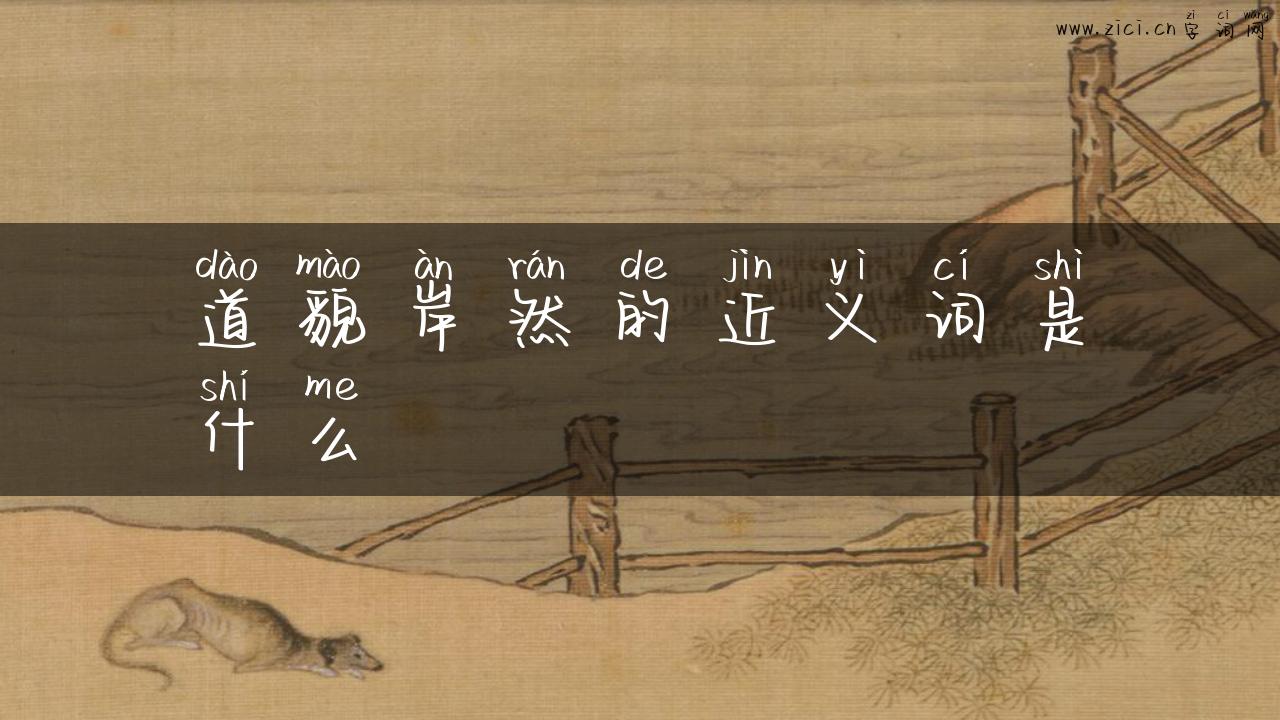 zì cí wǎng
www.zici.cn 字词网
dào mào àn rán de jìn yì cí shì
道貌岸然的近义词是
shí me
什么